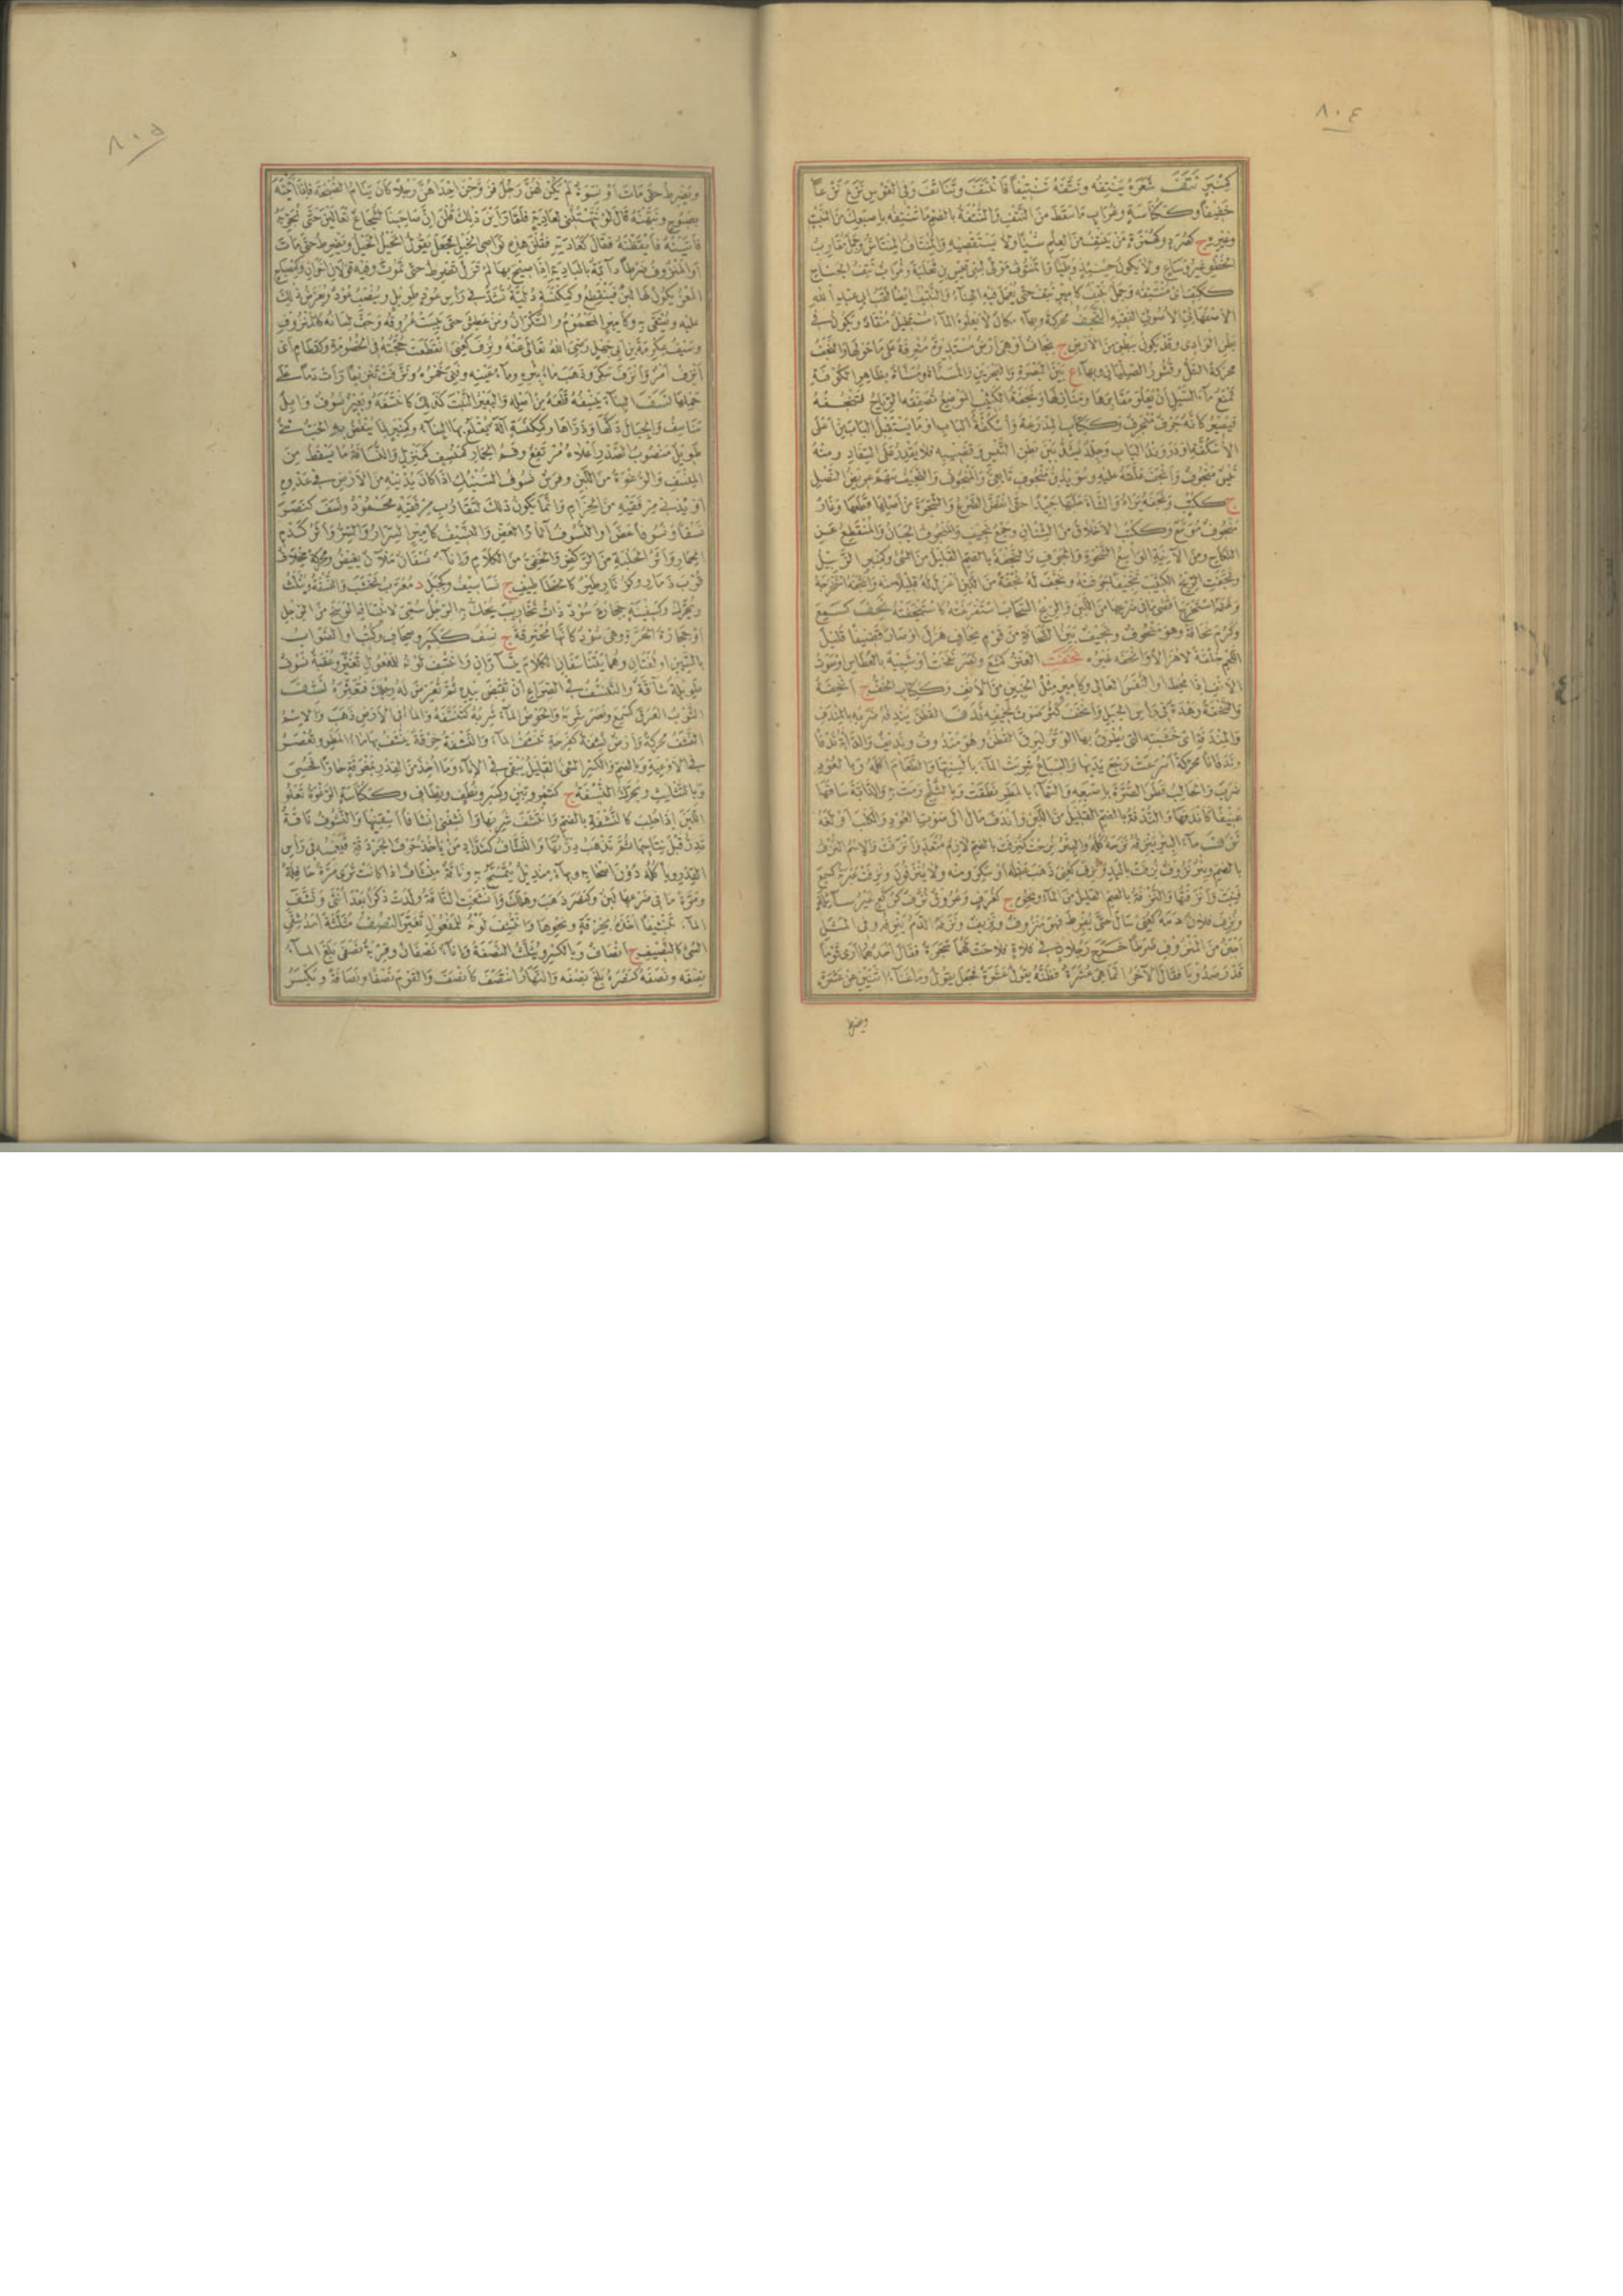 ٨٠٤
شعره ينتفه ونتفه تنتيفا فانتتف وتناتف وفي القوس نزع نزعا
خفيفا وككناسة وغراب ما سقط من النتف والنتفة بالضم ما تنتفه باصبعك من النبت
وغيره ج كصرد وكهمزة من ينتف من العلم شيئا ولا يستقصيه والمنتاف المنتاش وجمل مقارب
الاصبهاني الاصولي الفقيه النجف محركة وبهاء مكان لا يعلوه الماء مستطيل منقاد ويكون في
بطن الوادي وقد يكون ببطن من الارض ج نجاف او هي ارض مستديرة مشرفة على ما حولها والنجف
محركة التل وقشور الصليان وبهاء ع بين البصرة والبحرين والمسناة ومسناة بظاهر الكوفة
تمنع ماء السيل ان يعلو مقابرها ومنازلها ونجفة الكثيب الموضع تصفقه الرياح فتنجفه
فيصير كانه جرف منجرف وككتاب المدرعة واسكفة الباب او ما يستقبل الباب من اعلى
الاسكفة او دروند الباب وجلد يشد بين بطن التيس وقضيبه فلا يقدر على السفاد ومنه
تيس منجوف وانجف علقه عليه وسويد بن منجوف تابعي والمنجوف والنجيف سهم عريض النصل
ج ككتب ونجفه براه والشاة حلبها جيدا حتى انفض الضرع والشجرة من اصلها قطعها وغار
منجوف موسع وككتب الاخلاق من الشنان وجمع نجيف والمنجوف الجبان والمنقطع عن
النكاح ومن الآنية الواسع الشحوة والجوف والنجفة بالضم القليل من الشيء وكمنبر الزبيل
وغنمه استخرجها اقصى ما في ضرعها من اللبن والريح السحاب استفرغته كاستنجفته نحف كسمع
وكرم نحافة وهو منحوف ونحيف بين النحافة من قوم نحاف هزل او صار قضيفا قليل
اللحم خلقة لا هزالا وانحفه غيره نخفت العنز كمنع ونصر نفخت او شبيه بالعطاس او صوت
الانف اذا مخط او النفس العالي وكامير مثل الخنين من الانف وككتاب الخف ج انخفة
والنخفة وهدة في راس الجبل وانخف كثر صوت نخيفه ندف القطن يندفه ضربه بالمندف
والمندفة اي خشبته التي يطرق بها الوتر ليرق القطن وهو مندوف ونديف والدابة ندفا
وندفانا محركة اسرعت رجع يديها والسباع شربت الماء بالسنتها والطعام اكله وبالعود
ضرب والحالب فطر الضرة باصبعه والسماء بالمطر نطفت وبالثلج رمت به والدابة ساقها
عنيفا كاندفها والندفة بالضم القليل من اللبن واندف مال الى صوت العود والكلب اولغه
نزف ماء البئر ينزفه نزحه كله والبئر نزحت كنزفت بالضم لازم متعد وانزفت والاسم النزف
بالضم وبئر نزوف نزفت باليد ونزف كعني ذهب عقله او سكر ومنه ولا ينزفون
فنيت وانزفتها والنزفة بالضم القليل من الماء ونحوه ج كغرف وعروق نزف كركع غير سائلة
ونزف فلان دمه كعني سال حتى يفرط فهو منزوف ونزيف ونزفه الدم ينزفه وفي المثل
اجبن من المنزوف ضرطا خرج رجلان في فلاة فلاحت لهما شجرة فقال احدهما ارى قوما
قد رصدونا فقال الآخر انما هي عشرة فظنه يقول عشرة فجعل يقول وما غناء اثنين عن عشرة
ويضرط
٨٠٥
ويضرط حتى مات او نسوة لم يكن لهن رجل فزوجن احداهن رجلا كان ينام الصبحة فاذا اتينه
بصبوح ونبهنه قال لو نبهتنني لعادية فلما راين ذلك قلن ان صاحبنا لشجاع تعالين حتى نجربه
فاتينه فايقظنه فقال كعادته فقلن هذه نواصي الخيل فجعل يقول الخيل الخيل ويضرط حتى مات
او المنزوف ضرطا دابة بالبادية اذا صيح بها لم تزل تضرط حتى تموت وفيه قولان آخران
المعز يكون لها لبن فينقطع وكمكنسة دلية تشد في راس عود طويل وينصب عود ويعرض ذلك
عليه ويستقى به وكامير المحموم والسكران ومن عطش حتى يبست عروقه وجف لسانه كالمنزوف
وسيف عكرمة بن ابي جهل رضي الله تعالى عنه ونزف كعني انقطعت حجته في الخصومة
حملها نسف البناء ينسفه قلعه من اصله والبعير النبت كذلك كانتسفه وبعير نسوف وابل
مناسيف والجبال دكها وذراها وكمكنسة آلة يقتلع بها البناء وكمنبر لما ينفض به الحب شيء
طويل منصوب الصدر اعلاه مرتفع وفم الحمار كمنسف كمنزل والنسافة ما يسقط من
المنسف والرغوة من اللبن وفرس نسوف السنبك اذا كان يدنيه من الارض في عدوه
او يدني مرفقيه من الحزام وانما يكون ذلك لتقارب مرفقيه محمود ونسف كنصر
نسفا ونسوفا عض او النسوف آثار العض والنسيف كامير السرار والسر واثر كدم
الحمار واثر الحلبة من الركض والخفي من الكلام واناء نسفان ملآن يفيض
ويحرك وكسفينة حجارة سود ذات نخاريب يحك بها الرجل سمي لانتسافه الوسخ من الرجل
او حجارة الحرة وهي سود كانها محترقة ج نسف ككسر وصحاف وكتب او الصواب
بالشين او لغتان وهما يتناسفان الكلام يتساران وانتسف لونه للمفعول تغير وعقبة نسوف
طويلة شاقة والتنسف في الصراع ان تقبض بيده ثم تعرض له رجلك فتعثره نشف
الثوب العرق كسمع ونصر شربه والحوض الماء شربه كتنشفه والماء في الارض ذهب والاسم
النشف محركة وارض نشفة كفرحة تنشف الماء والنشفة خرقة ينشف بها ماء المطر وتعصر
في الاوعية وبالضم والكسر الشيء القليل يبقى في الاناء وما اخذ من القدر بمغرفة حارا فحسي
وبالتثليث ويحرك النشفة ج كتمر وتين وكسر ونطف ونطاف وككناسة الرغوة تعلو
اللبن اذا حلب كالنشفة بالضم وانتشف شربها وانشفني انشافا اسقنيها والنشوف ناقة
تدر قبل نتاجها ثم تذهب درتها والنشاف كشداد من ياخذ حرف الجردقة فيغمسه في راس
القدر وياكله دون اصحابه وبهاء منديل يتمسح به وناقة منشاف اذا كانت ترى مرة حافلة
ومرة ما في ضرعها لبن وكنصر ذهب وهلك وانشفت الناقة ولدت ذكرا بعد انثى ونشف
الماء تنشيفا اخذه بخرقة ونحوها وانتشف لونه للمفعول تغير النصف مثلثة احد شقي
الشيء كالنصيف ج انصاف وبالكسر ويثلث النصفة واناء نصفان وقربة نصفى بلغ الماء
نصفه ونصفه كنصره بلغ نصفه والنهار انتصف كانصف والقوم نصفا ونصافة ويكسر